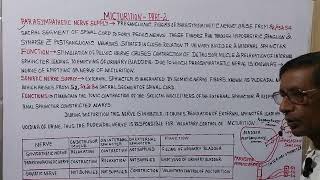 MICTURITION - PART-2
PARASYMPATHETIC NERVE SUPPLY → PREGANGLIONIC FIBERS OF PARASYMPATHETIC NERVE ARISE FROM S2, S3 & S4
SACRAL SEGMENT OF SPINAL CORD & FORMS PELVIC NERVE. THESE FIBERS RUN THROUGH HYPOGASTRIC GANGLION &
SYNAPSE & POSTGANGLIONIC NEURONS SITUATED IN CLOSE RELATION TO URINARY BLADDER & INTERNAL SPHINCTER.
FUNCTION → STIMULATION OF PELVIC NERVE CAUSES CONTRACTION OF DETRUSOR MUSCLE & RELAXATION OF INTERNAL
SPHINCTER LEADING TO EMPTYING OF URINARY BLADDER. DUE TO THIS PARASYMPATHETIC NERVE IS KNOWN AS
NERVE OF EMPTYING OR NERVE OF MICTURITION.
SOMATIC NERVE SUPPLY → EXTERNAL SPHINCTER IS INNERVATED BY SOMATIC NERVE FIBERS KNOWN AS PUDENDAL NERVE
WHICH ARISES FROM S2, S3 & S4 SACRAL SEGMENTS OF SPINAL CORD.
FUNCTIONS → MAINTAINS THE TONIC CONTRACTION OF THE SKELETAL MUSCLE FIBERS OF THE EXTERNAL SPHINCTER &
THIS SPHINCTER CONTRACTED ALWAYS
DURING MICTURITION, THIS NERVE IS INHIBITED. IT CAUSES RELAXATION OF EXTERNAL SPHINCTER LEADING TO
VOIDING OF URINE. THUS THE PUDENDAL NERVE IS RESPONSIBLE FOR VOLUNTARY CONTROL OF MICTURITION.
NERVE ON DETRUSOR MUSCLE ON INTERNAL SPHINCTER ON EXTERNAL SPHINCTER FUNCTION
SYMPATHETIC NERVE RELAXATION CONTRACTION NOT SUPPLIED FILLING OF URINARY BLADDER
PARASYMPATHETIC NERVE CONTRACTION RELAXATION NOT SUPPLIED EMPTYING OF URINARY BLADDER
SOMATIC NERVE NOT SUPPLIED NOT SUPPLIED CONTRACTION VOLUNTARY CONTROL OF MICTURITION